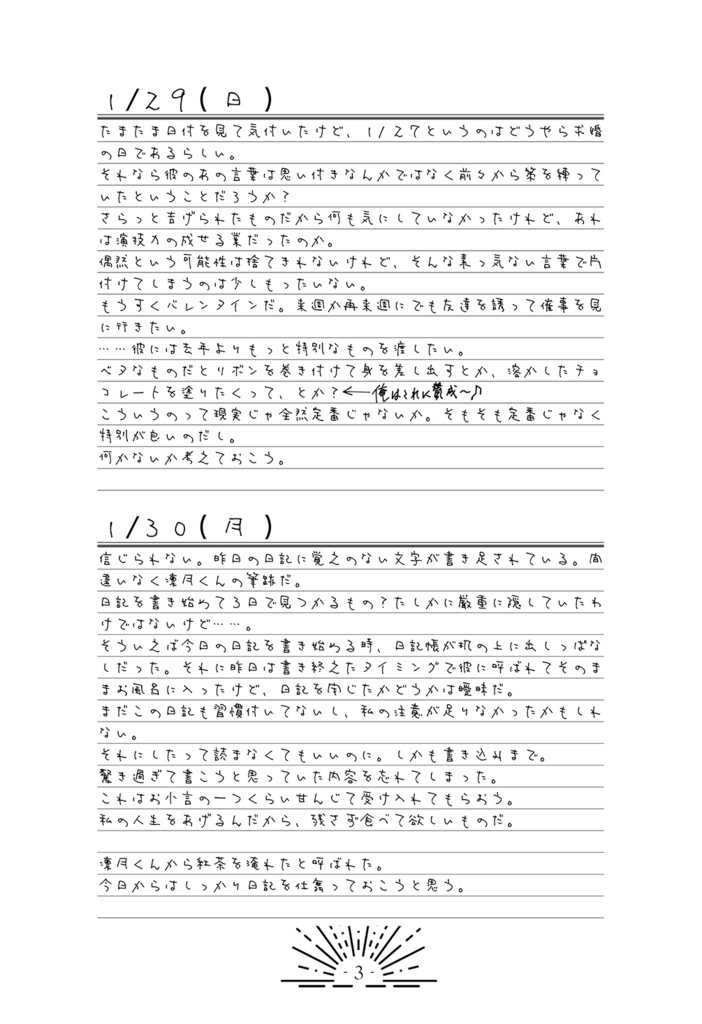 1/29(日)
たまたま日付を見て気付いたけど、1/27というのはどうやら求婚
の日であるらしい。
それなら彼のあの言葉は思い付きなんかではなく前々から策を練って
いたということだろうか？
さらっと告げられたものだから何も気にしていなかったけれど、あれ
は演技力の成せる業だったのか。
偶然という可能性は捨てきれないけれど、そんな素っ気ない言葉で片
付けてしまうのは少しもったいない。
もうすぐバレンタインだ。来週か再来週にでも友達を誘って催事を見
に行きたい。
……彼には去年よりもっと特別なものを渡したい。
ベタなものだとリボンを巻き付けて身を差し出すとか、溶かしたチョ
コレートを塗りたくって、とか？←俺はこれに賛成〜♪
こういうのって現実じゃ全然定番じゃないか。そもそも定番じゃなく
特別が良いのだし。
何かないか考えておこう。
1/30(月)
信じられない。昨日の日記に覚えのない文字が書き足されている。間
違いなく凛月くんの筆跡だ。
日記を書き始めて3日で見つかるもの？たしかに厳重に隠していたわ
けではないけど……。
そういえば今日の日記を書き始める時、日記帳が机の上に出しっぱな
しだった。それに昨日は書き終えたタイミングで彼に呼ばれてそのま
まお風呂に入ったけど、日記を閉じたかどうかは曖昧だ。
まだこの日記も習慣付いてないし、私の注意が足りなかったかもしれ
ない。
それにしたって読まなくてもいいのに。しかも書き込みまで。
驚き過ぎて書こうと思っていた内容を忘れてしまった。
これはお小言の一つくらい甘んじて受け入れてもらおう。
私の人生をあげるんだから、残さず食べて欲しいものだ。
凛月くんから紅茶を淹れたと呼ばれた。
今日からはしっかり日記を仕舞っておこうと思う。
- 3 -